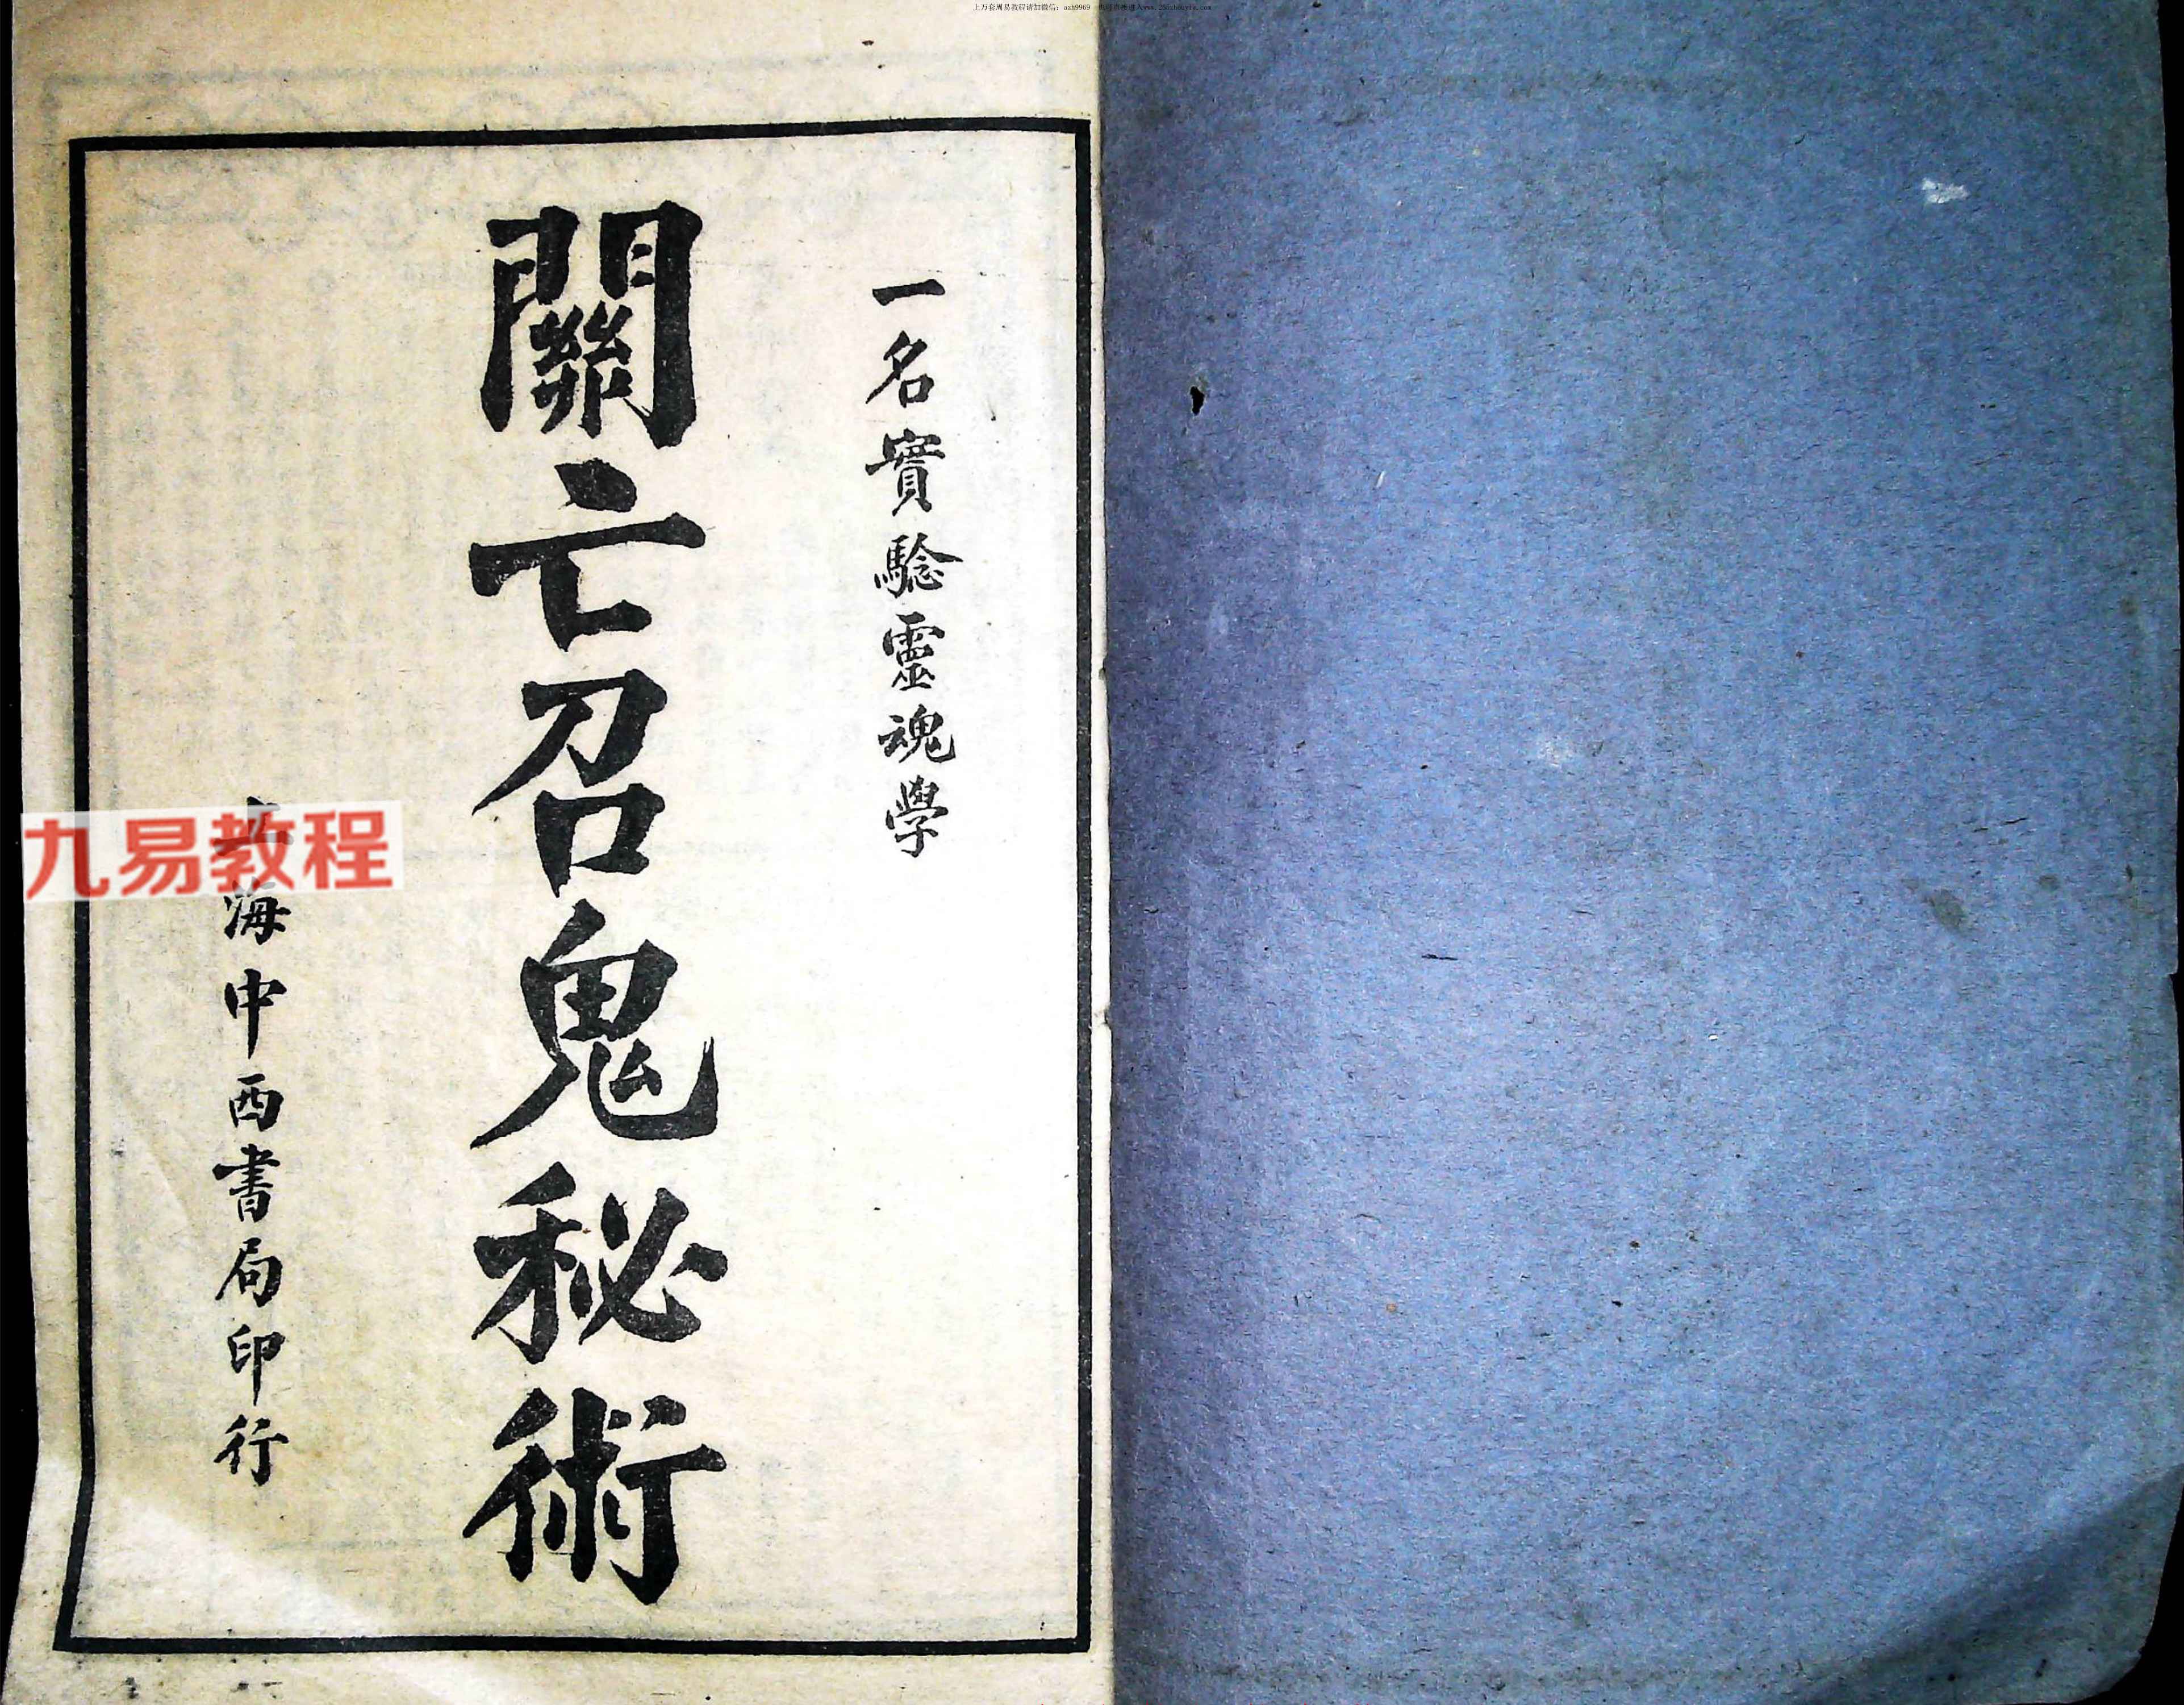 上万套周易教程请加微信：azh9969
一名實驗靈魂學
關亡召鬼秘術
海中西書局印行
九易教程